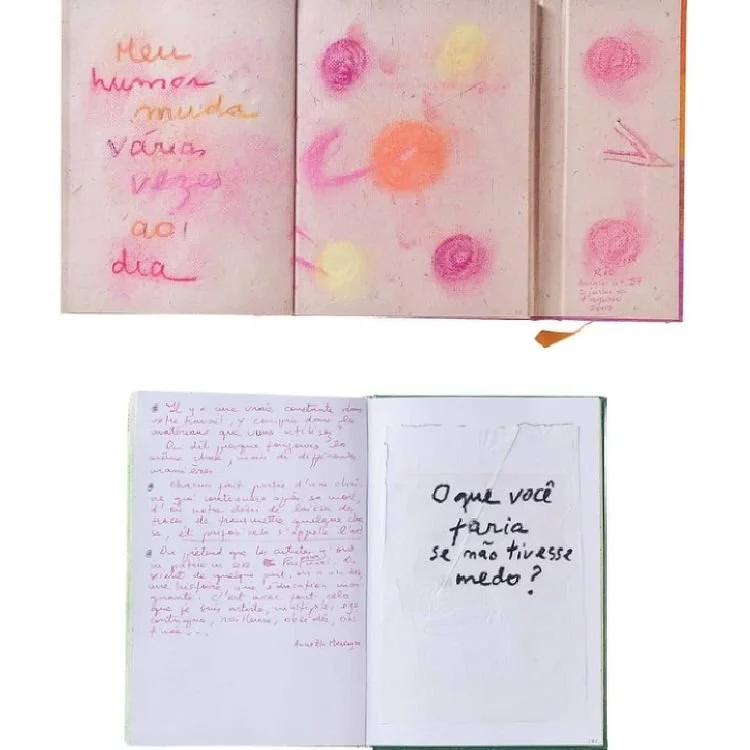 Meu
humor
muda
várias
vezes
ao
dia
Rio
2 junho a
agosto
Il y a une vraie constante dans
votre travail, y compris dans les
matériaux que vous utilisez ?
On dit presque toujours la
même chose, mais de différentes
manières
Chacun fait partie d'une chaî
ne qui continuera après sa mort,
d'où notre désir de laisser des
traces de transmettre quelque cho
se, et parfois cela s'appelle l'art
On prétend que les artistes n'ont
ni patrie ni sexe
vient de quelque part, on a
une histoire, une éducation
C'est avec tout cela
que je suis artiste, multiple,
Annette Messager
O que você
faria
se não tivesse
medo ?